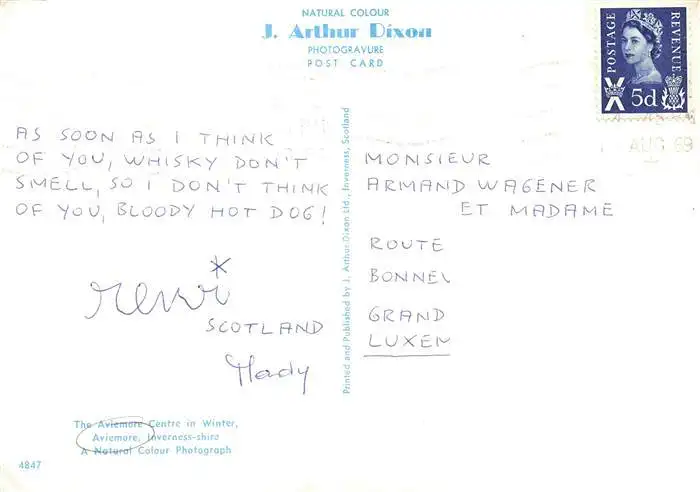 NATURAL COLOUR
J. Arthur Dixon
PHOTOGRAVURE
POST CARD
POSTAGE
REVENUE
5d
AUG 69
AS SOON AS I THINK
OF YOU, WHISKY DON'T
SMELL, SO I DON'T THINK
OF YOU, BLOODY HOT DOG!
SCOTLAND
Mady
Printed and Published by J. Arthur Dixon Ltd., Inverness, Scotland
MONSIEUR
ARMAND WAGENER
ET MADAME
ROUTE
BONNEL
GRAND
LUXEM
The Aviemore Centre in Winter,
Aviemore, Inverness-shire
A Natural Colour Photograph
4847